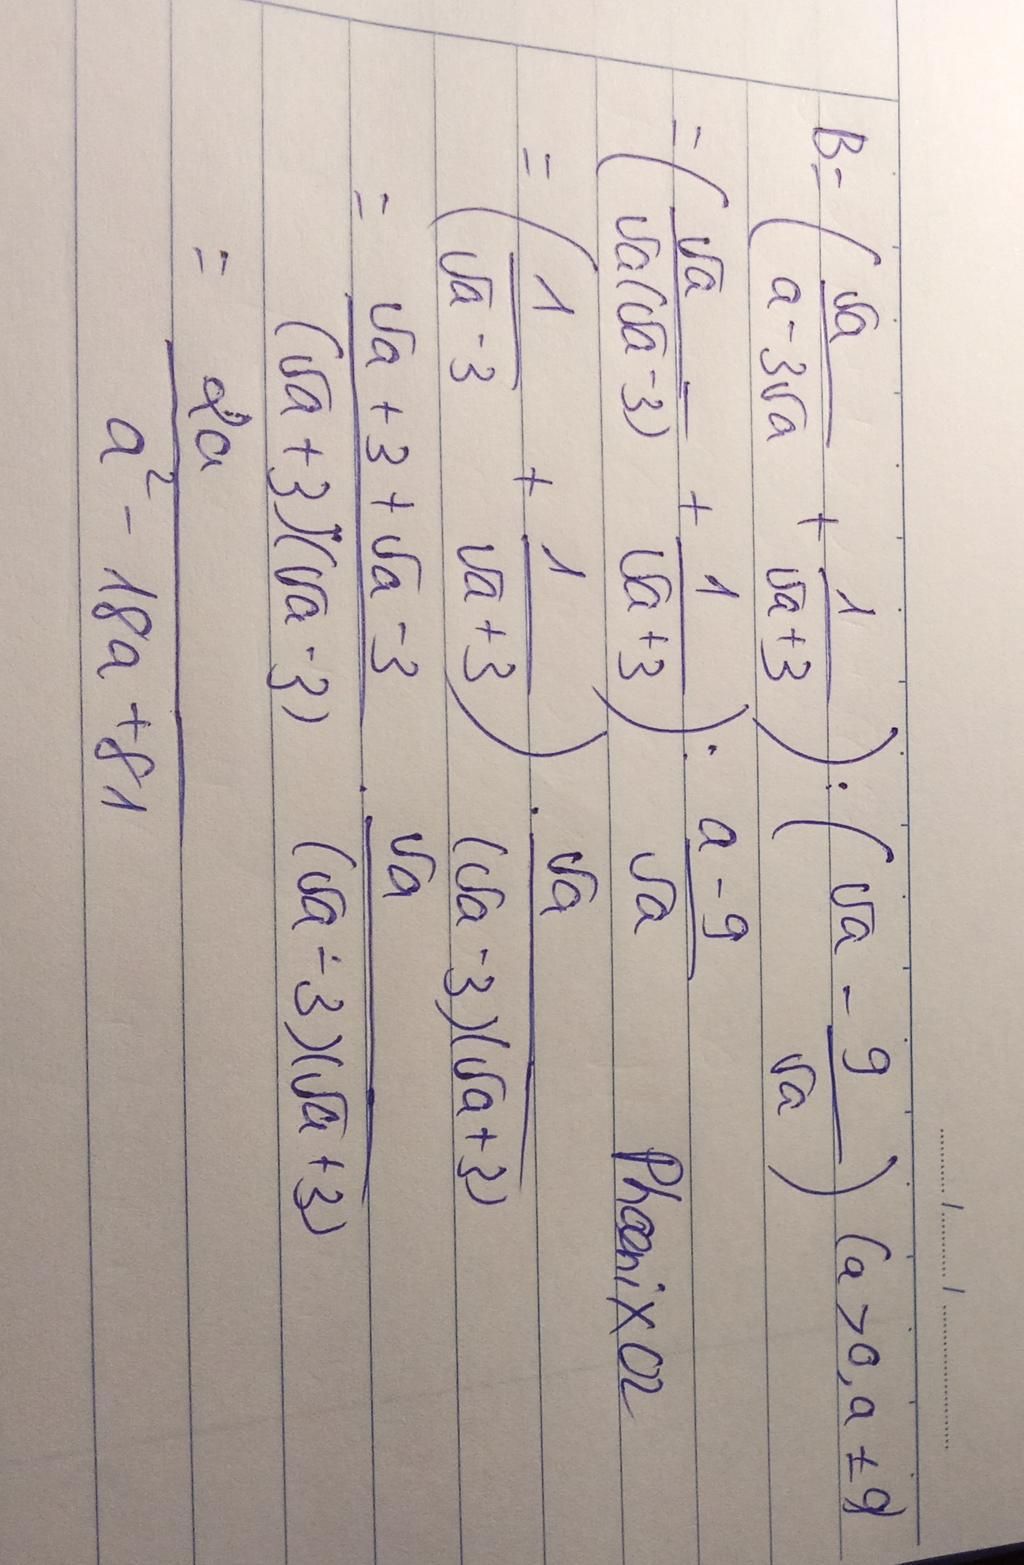 B = (√a / (a - 3√a) + 1 / (√a + 3)) : (√a - 9 / √a) (a > 0, a ± 9)
= (√a / (√a(√a - 3)) + 1 / (√a + 3)) : (a - 9) / √a
PhoeniX02
= (1 / (√a - 3) + 1 / (√a + 3)) . √a / ((√a - 3)(√a + 3))
= (√a + 3 + √a - 3) / ((√a + 3)(√a - 3)) . √a / ((√a - 3)(√a + 3))
= 2a / (a² - 18a + 81)